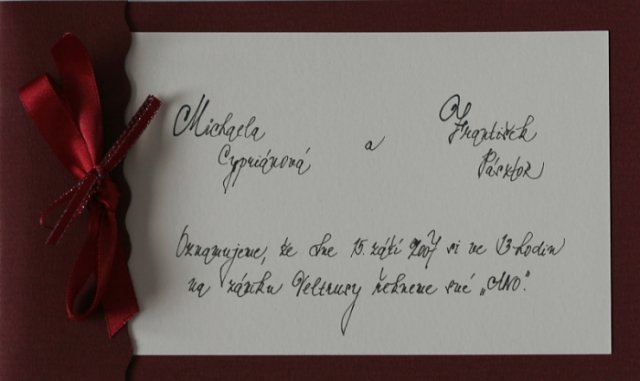 Michaela František
Cypriánová a Pásztor
Oznamujeme, že dne 15. září 2007 si ve 13 hodin
na zámku Veltrusy řekneme své „ANO“.